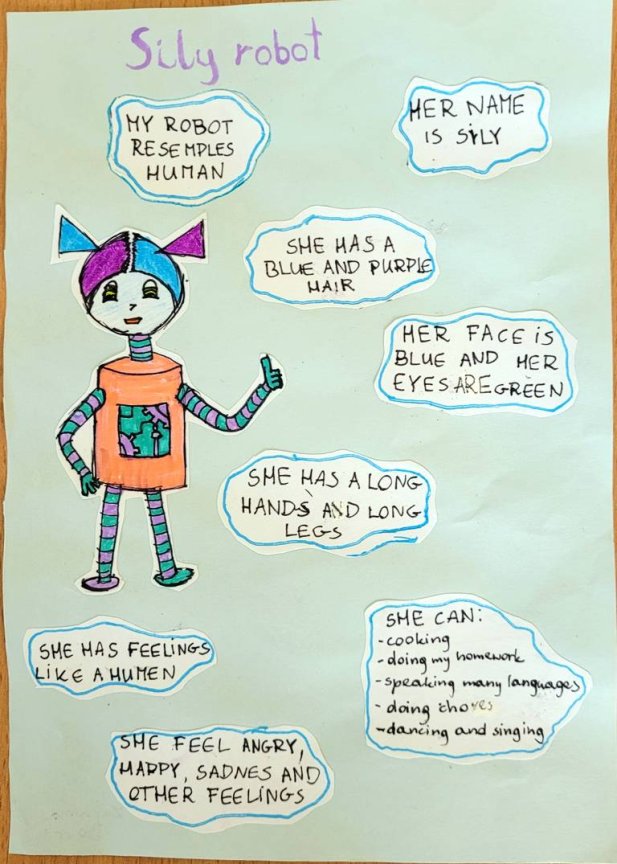 Sily robot
MY ROBOT
RESEMPLES
HUMAN
HER NAME
IS SiLY
SHE HAS A
BLUE AND PURPLE
HAIR
HER FACE iS
BLUE AND HER
EYES ARE GREEN
SHE HAS A LONG
HANDS AND LONG
LEGS
SHE HAS FEELINGS
LIKE A HUMEN
SHE CAN:
-cooking
-doing my homework
-speaking many languages
-doing chores
-dancing and singing
SHE FEEL ANGRY,
HAPPY, SADNES AND
OTHER FEELINGS